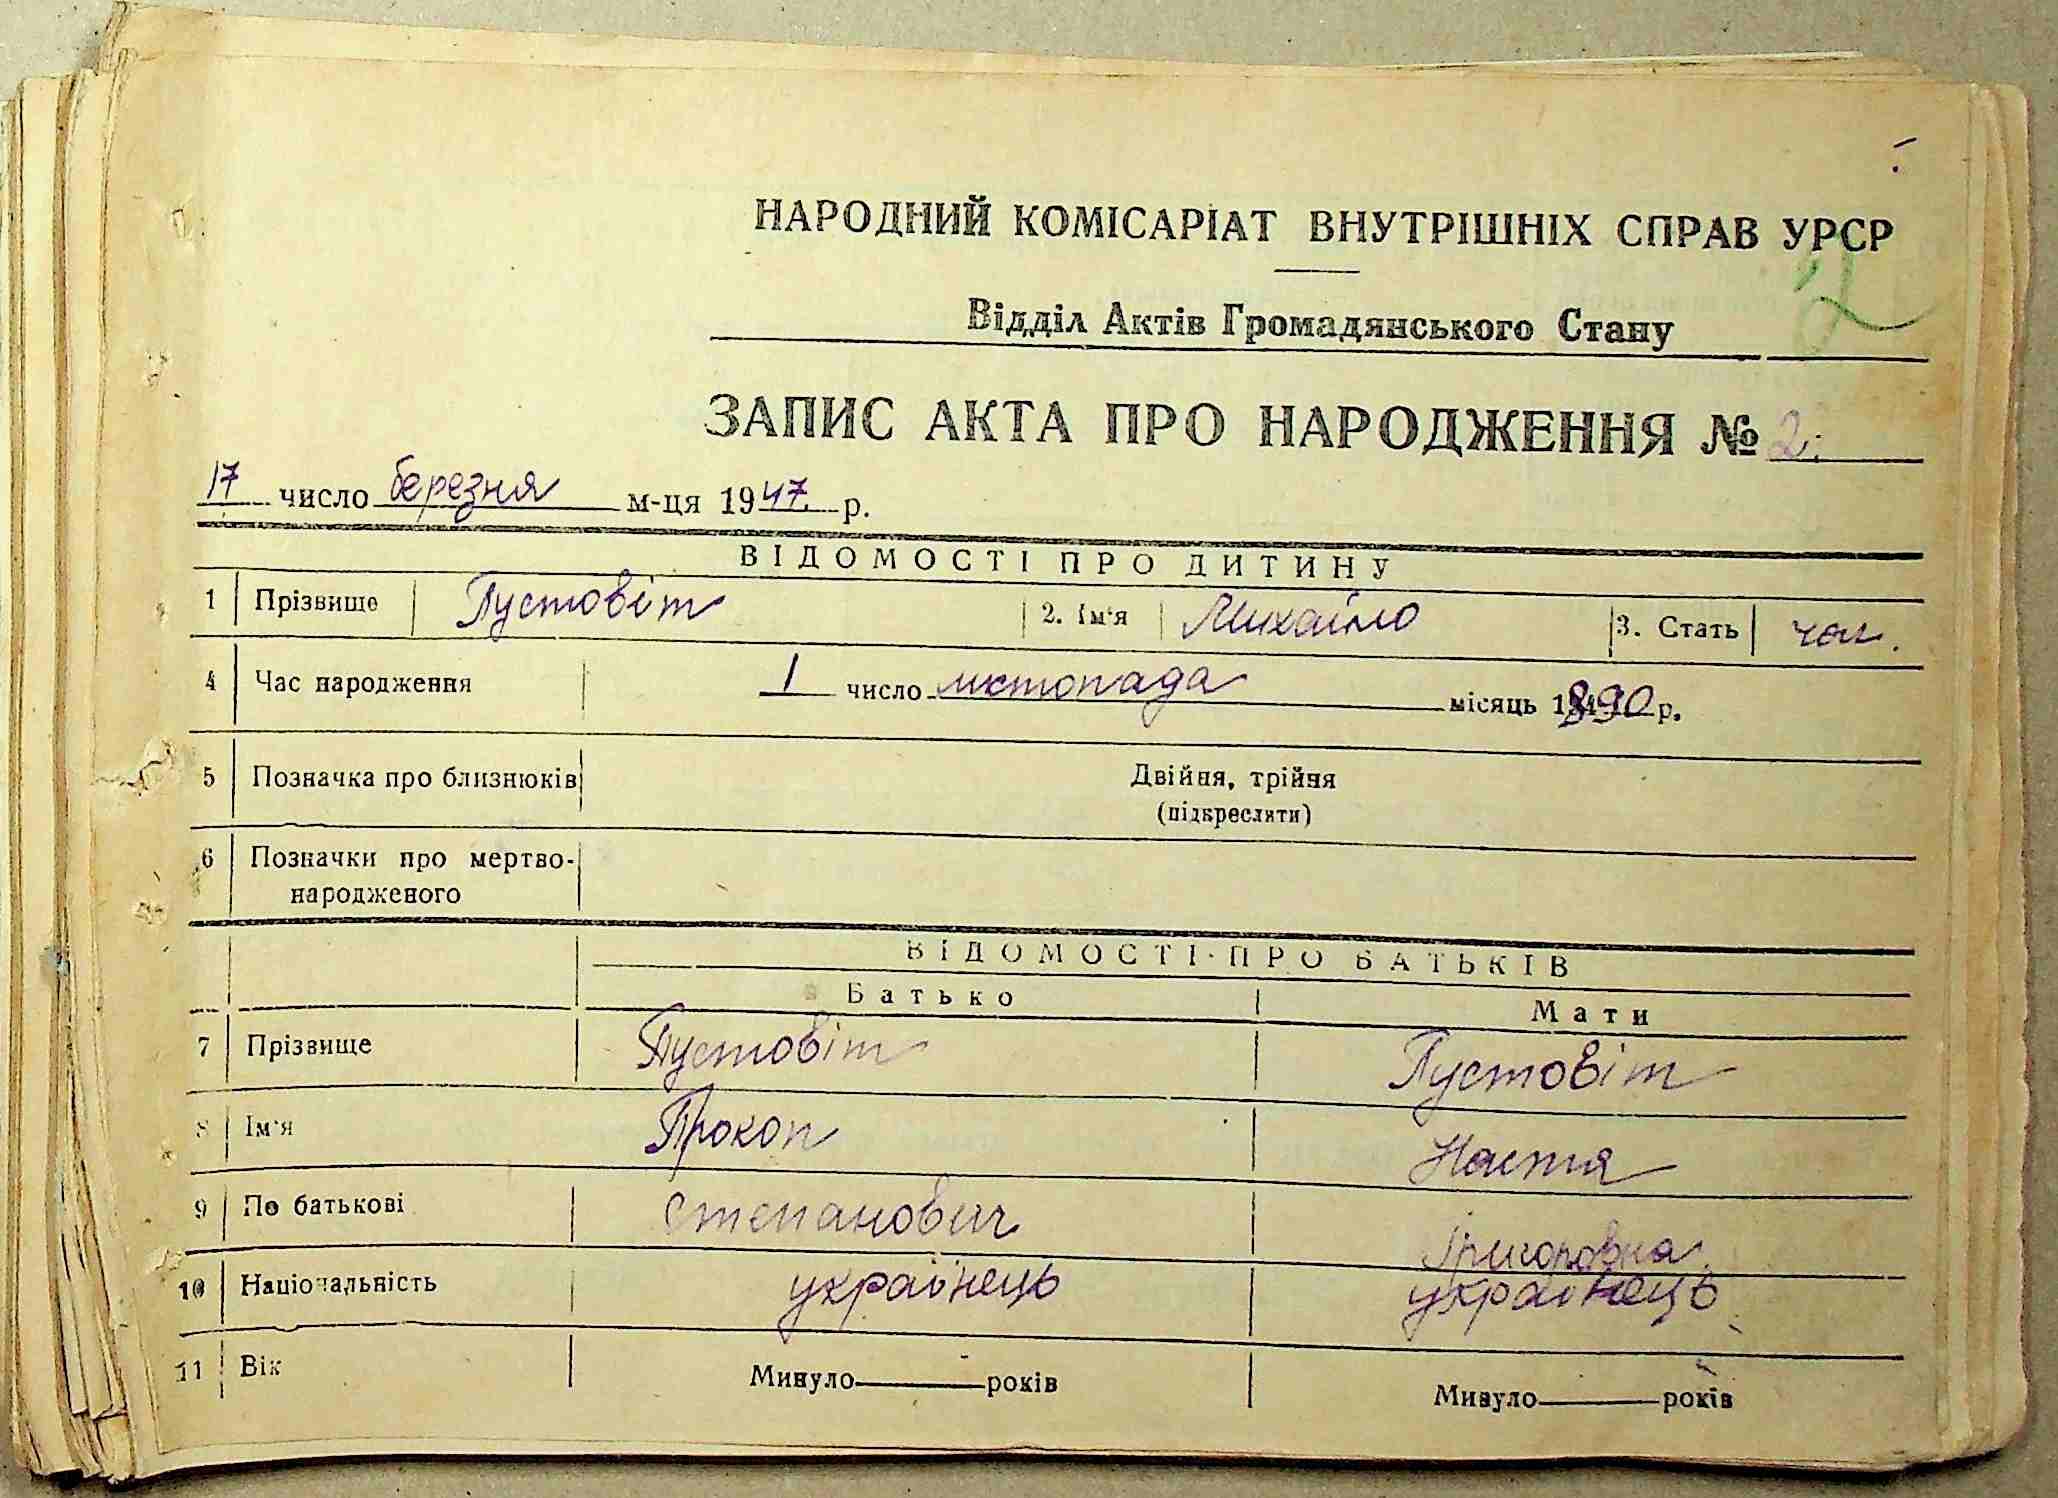 НАРОДНИЙ КОМІСАРІАТ ВНУТРІШНІХ СПРАВ УРСР
2
Відділ Актів Громадянського Стану
ЗАПИС АКТА ПРО НАРОДЖЕННЯ № 2.
17 число березня м-ця 1947 р.
ВІДОМОСТІ ПРО ДИТИНУ
1 Прізвище Пустовіт 2. Ім'я Михайло 3. Стать чол.
4 Час народження 1 число листопада місяць 1890 р.
5 Позначка про близнюків Двійня, трійня
(підкреслити)
6 Позначки про мертво-
народженого
ВІДОМОСТІ ПРО БАТЬКІВ
Батько Мати
7 Прізвище Пустовіт Пустовіт
8 Ім'я Прокоп Настя
9 По батькові Степанович Григоровна
10 Національність українець українець
11 Вік Минуло років Минуло років